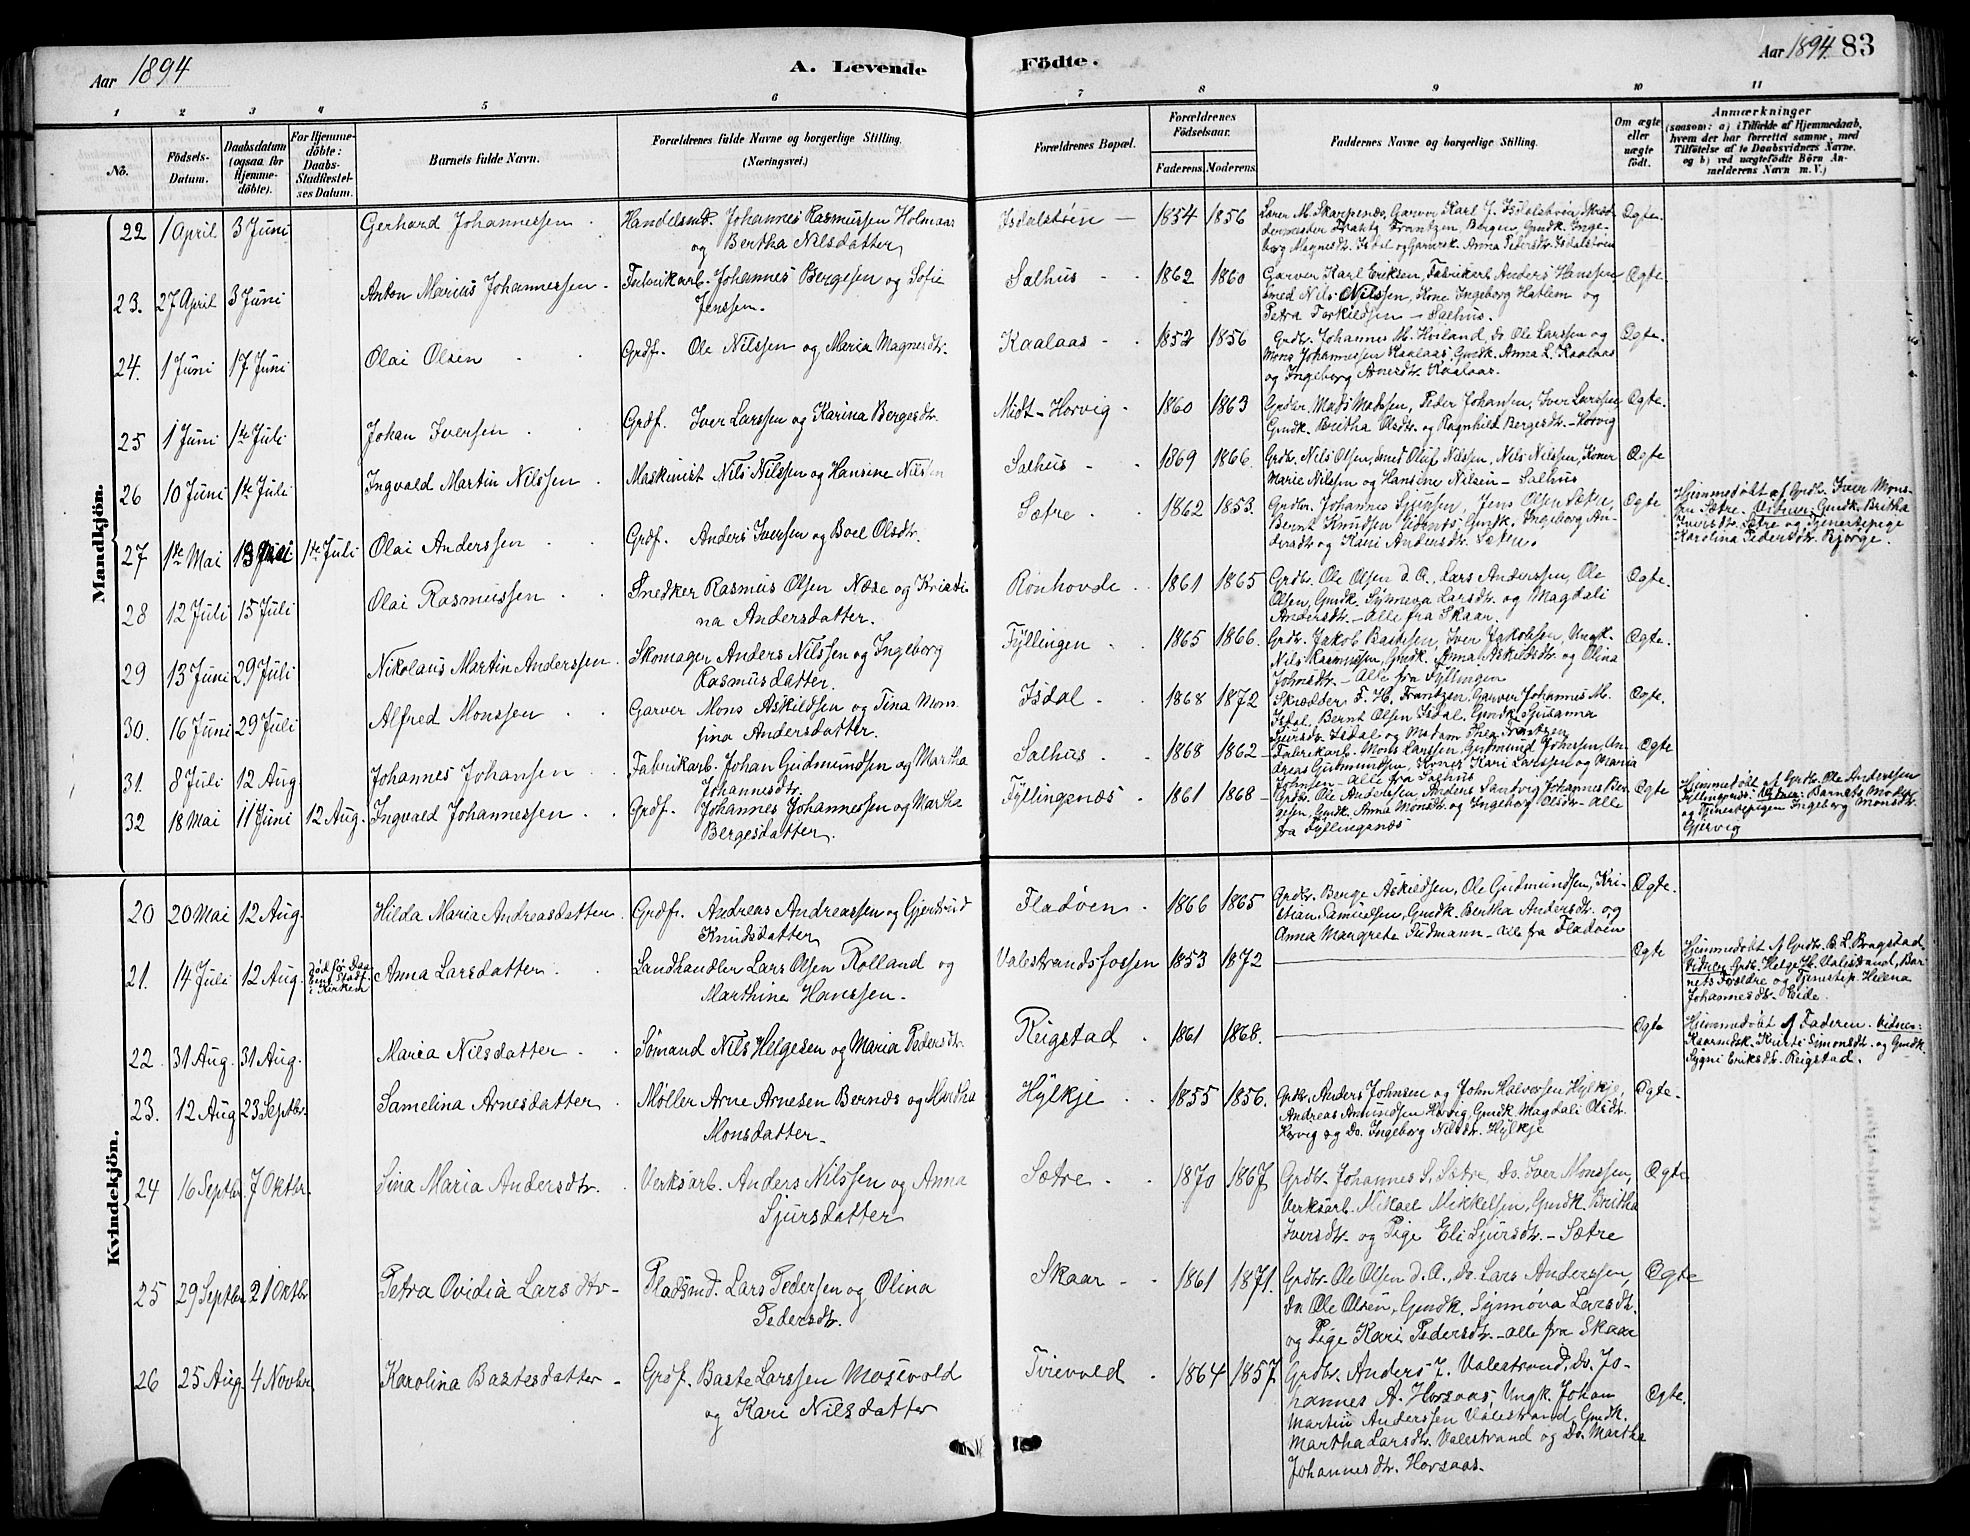 Aar 1894
A. Levende
Födte.
Aar 1894. 83
1 2 3 4 5 6 7 8 9 10 11
No.
Födsels-
Datum.
Daabsdatum
(ogsaa for
Hjemme-
döbte).
For Hjemme-
döbte:
Daabs-
Stadfæstel-
ses Datum.
Barnets fulde Navn.
Forældrenes fulde Navne og borgerlige Stilling.
(Næringsvei.)
Forældrenes Bopæl.
Forældrenes
Födselsaar.
Faderens. Moderens.
Faddernes Navne og borgerlige Stilling.
Om ægte
eller
uægte
født.
Anmærkninger
(saasom: a) i Tilfælde af Hjemmedaab,
hvem der har forrettet samme, med
Tilföielse af to Daabsvidners Navne,
og b) ved uægtefödte Börn An-
melderens Navn m. V.)
Mandkjön.
22 1 April 3 Juni Gerhard Johannessen Handelsmd. Johannes Rasmussen Holmaas
og Bertha Nilsdatter
Isdalstøen 1854 1856 Lærer M. Skarpenæs, Garver Karl J. Isdalstøen,
Frantzen, Bergen, Gmdk. Inge-
borg Magnesdtr. Isdal og Anna Pedersdtr. Isdalstøen
Ægte.
23. 27 April 3 Juni Anton Marius Johannessen Fabrikarb. Johannes Bergesen og Sofie
Jenssen.
Salhus 1862 1860 Garver Karl Eriksen, Fabrikarb. Anders Hanssen,
Smed Nils Nilssen, Kone Ingeborg Hatlem og
Petra Torkildsen – Salhus.
Ægte.
24. 1 Juni 17 Juni Olai Olsen Grdf. Ole Nilssen og Maria Magnesdtr.
Kaalaas 1852 1856 Grdbr. Johannes M. Heiland, Do Ole Larssen og
Mons Johannessen Kaalaas, Gmdk. Anna L. Kaalaas
og Ingeborg Arnesdtr. Kaalaas.
Ægte.
25 1 Juni 1ste Juli Johan Iversen Grdf. Iver Larssen og Karina Bergesdtr.
Midt-Horvig 1860 1863 Grdbr. Mads Madssen, Peder Johansen, Iver Larssen
Gmdk. Britha Olsdtr. og Ragnhild Bergesdtr. – Horvig
Ægte.
26 10 Juni 1ste Juli Ingvald Martin Nilssen Maskinist Nils Nilssen og Hansine Nilsen
Salhus 1869 1866. Grdbr. Nils Olsen, Smed Oluf Nilssen, Nils Nilssen, Koner
Marie Nilssen og Hansine Nilsen – Salhus
Ægte
27 1ste Mai 13 1ste Juli Olai Anderssen Grdf. Anders Iversen og Boel Olsdtr.
Sætre 1862 1853. Grdbr. Johannes Sjursen, Jens Olsen Sætre,
Bernt Knudsen Gmdk. Ingeborg An-
dersdtr og Kari Andersdtr. Sætre.
Ægte
Hjemmedøbt af Grdbr. Iver Mons-
sen Sætre. Vidner: Gmdk. Britha
Iversdtr. Sætre og Tjenestepige
Karolina Pedersdtr. Bjørge.
28 12 Juli 15 Juli Olai Rasmussen Snedker Rasmus Olsen Næse og Kristi-
na Andersdatter.
Rønhovde 1861 1865 Grdbr. Ole Olsen d. Æ., Lars Anderssen, Ole
Olsen, Gmdk. Synneva Larsdtr. og Magdali
Andersdtr. – Alle fra Skaar.
Ægte.
29 13 Juni 29 Juli Nikolaus Martin Anderssen Skomager Anders Nilssen og Ingeborg
Rasmusdatter.
Fyllingen 1865 1866. Grdbr. Jakob Bastesen, Iver Jakobsen, Ungk.
Nils Rasmussen, Gmdk. Anna Askildsdtr. og Olina
Johnsdtr. – Alle fra Fyllingen
Ægte.
30. 16 Juni 29 Juli Alfred Monssen Garver Mons Askildsen og Tina Mons-
sina Andersdatter.
Isdal 1868 1872 Skrædder F. H. Frantzen, Garver Johannes M.
Isdal, Bernt Olsen Isdal, Gmdk. Sjusanna
Sjursdtr. Isdal og Madam Thea Frantzen
Ægte.
31. 8 Juli 12 Aug Johannes Johansen Fabrikarb. Johan Gudmundsen og Martha
Johannesdtr.
Salhus 1868 1862 Fabrikarb. Mons Larssen, Gudmund Johnssen, An-
dreas Gudmundsen, Koner Kari Larssen og Maria
Johnsen – alle fra Salhus
Ægte
32 18 Mai 11 Juni 12 Aug. Ingvald Johannessen Grdf. Johannes Johannessen og Martha
Bergesdatter.
Fyllingsnæs 1861 1868 Grdbr. Ole Anderssen, Anders Sandvig, Johannes Ber-
gesen, Gmdk. Anna Monsdtr. og Ingeborg Olsdtr. – alle
fra Fyllingsnæs
Ægte
Hjemmedøbt af Grdbr. Ole Anderssen
Fyllingsnæs. Vidner: Barnets Moder
og Tjenestepigen Ingeborg Monsdtr.
Gjervig
Kvindekjön.
20 20 Mai 12 Aug. Hilda Maria Andreasdatter Grdf. Andreas Andreassen og Gjertrud
Knudsdatter
Fladøen 1866 1865 Grdbr. Berge Askildsen, Ole Gudmundsen, Kri-
stian Samuelsen, Gmdk. Bertha Andersdtr. og
Anna Margrete Ludmann – alle fra Fladøen
Ægte.
21. 14 Juli 12 Aug. Død før Daa-
ben
i Kirken
Anna Larsdatter Landhandler Lars Olsen Rolland og
Marthina Hanssen.
Valestrandsfossen 1853 1872
Ægte
Hjemmedøbt af Grdbr. O. L. Brogstad,
Vidner: Grdr. Helge H. Valestrand, Bar-
nets Forældre og Tjenestep. Helena
Johannesdtr. Eide.
22 31 Aug. 31 Aug. Maria Nilsdatter Sømand Nils Helgesen og Maria Pedersdtr.
Reigstad 1861 1868.
Ægte
Hjemmedøbt af Faderen. Vidner:
Kaarmdsk. Kirsti Simonsdtr. og Gmdk.
Sygni Eriksdtr. Reigstad.
23. 12 Aug 23 Septbr. Samelina Arnesdatter Møller Arne Arnesen Bernæs og Martha
Monsdatter
Hylkje 1855 1856. Grdbr. Anders Johnsen og John Halvorsen Hylkje,
Andreas Amundsen Horvig, Gmdk. Magdali Olsdtr.
Horvig og Do. Ingeborg Nilsdtr. Hylkje
Ægte.
24 16 Septbr. 7 Oktbr. Sina Maria Andersdtr. Verksarb. Anders Nilssen og Anna
Sjursdatter
Sætre 1870 1867 Grdbr. Johannes S. Sætre, Do. Iver Monssen,
Verksarb. Mikael Mikkelsen, Gmdk. Britha
Iversdtr. og Pige Eli Sjursdtr. – Sætre
Ægte.
25 29 Septbr. 21 Oktbr Petra Ovidia Larsdtr Pladsmd. Lars Pedersen og Olina
Pedersdtr.
Skaar 1861 1871. Grdbr. Ole Olsen d. Æ., Do. Lars Anderssen,
Do Ole Olsen, Gmdk. Synnøva Larsdtr.
og Pige Kari Pedersdtr. – alle fra Skaar
Ægte
26 25 Aug. 4 Novbr. Karolina Bastesdatter Grdf. Baste Larssen Mosevold
og Kari Nilsdatter
Tvievold 1864 1857 Grdbr. Anders J. Valestrand, Do. Jo-
hannes A. Horsaas, Ungk. Johan
Martin Anderssen Valestrand, Gmdk.
Martha Larsdtr. Valestrand og Do. Martha
Johannesdtr. Horsaas.
Ægte.